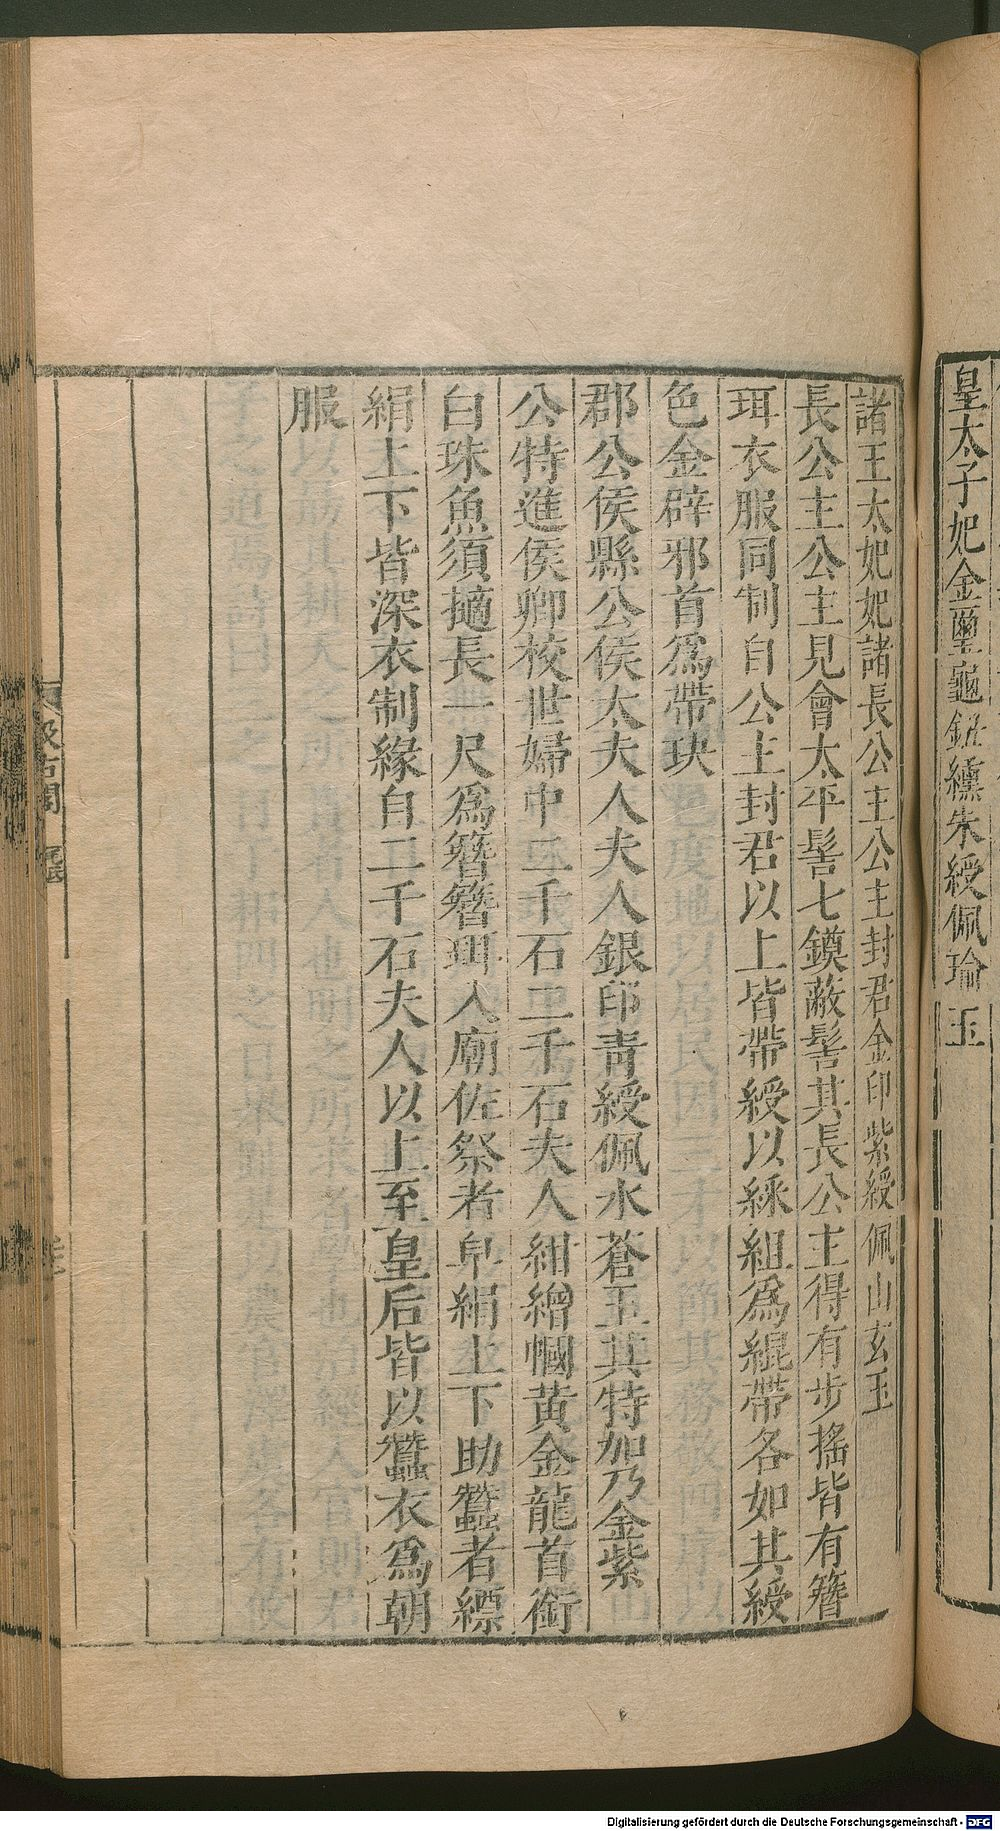 皇太子妃金璽龜鈕纁朱綬佩瑜玉
諸王太妃妃諸長公主公主封君金印紫綬佩山玄玉
長公主公主見會太平髻七鏌蔽髻其長公主得有步搖皆有簪
珥衣服同制自公主封君以上皆帶綬以綵組爲緄帶各如其綬
色金辟邪首爲帶玦
郡公侯縣公侯太夫人夫人銀印青綬佩水蒼玉其特加乃金紫
公特進侯卿校世婦中二千石二千石夫人紺繒幗黃金龍首銜
白珠魚須擿長一尺爲簪簪珥入廟佐祭者皁絹上下助蠶者縹
絹上下皆深衣制緣自二千石夫人以上至皇后皆以蠶衣爲朝
服
汲古閣
Digitalisierung gefördert durch die Deutsche Forschungsgemeinschaft - DFG